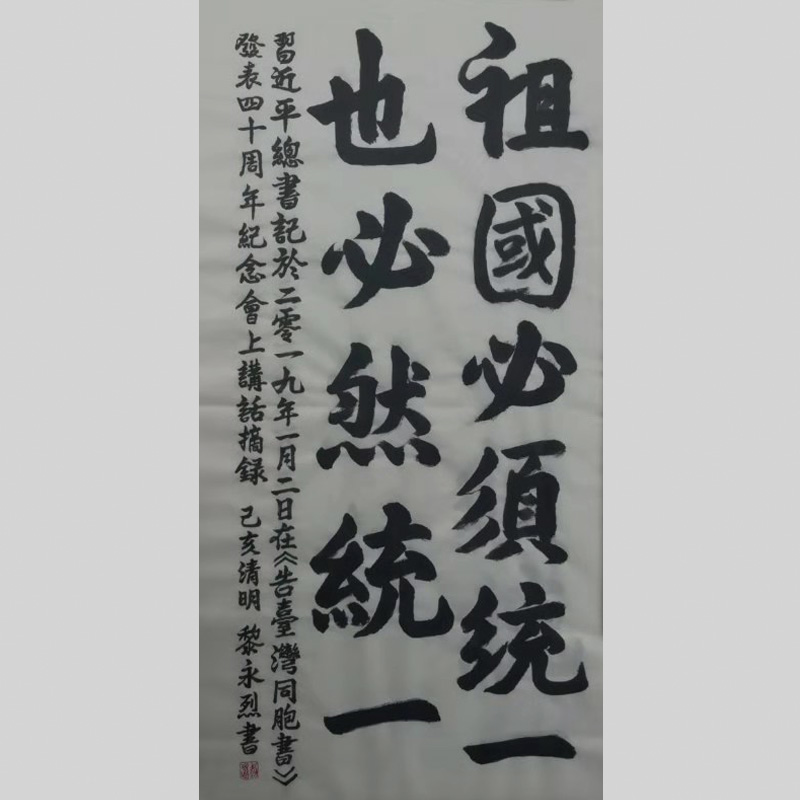 祖國必須统一
也必然統一
習近平總書記於二零一九年一月二日在《告臺灣同胞書》
發表四十周年紀念會上講話摘録 己亥清明 黎永烈書